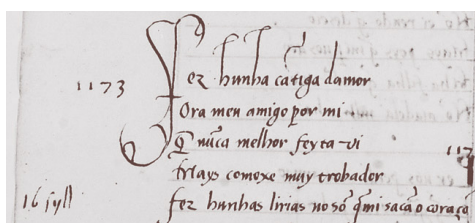 1173
Fez hunha cãtiga damor
Ora meu amigo por mi
q̃ nũca melhor feyta vi
Mays comoxe muy trobador
16 syll
fez hunhas lirias no sõ q̃ mi sacã o coraçõ